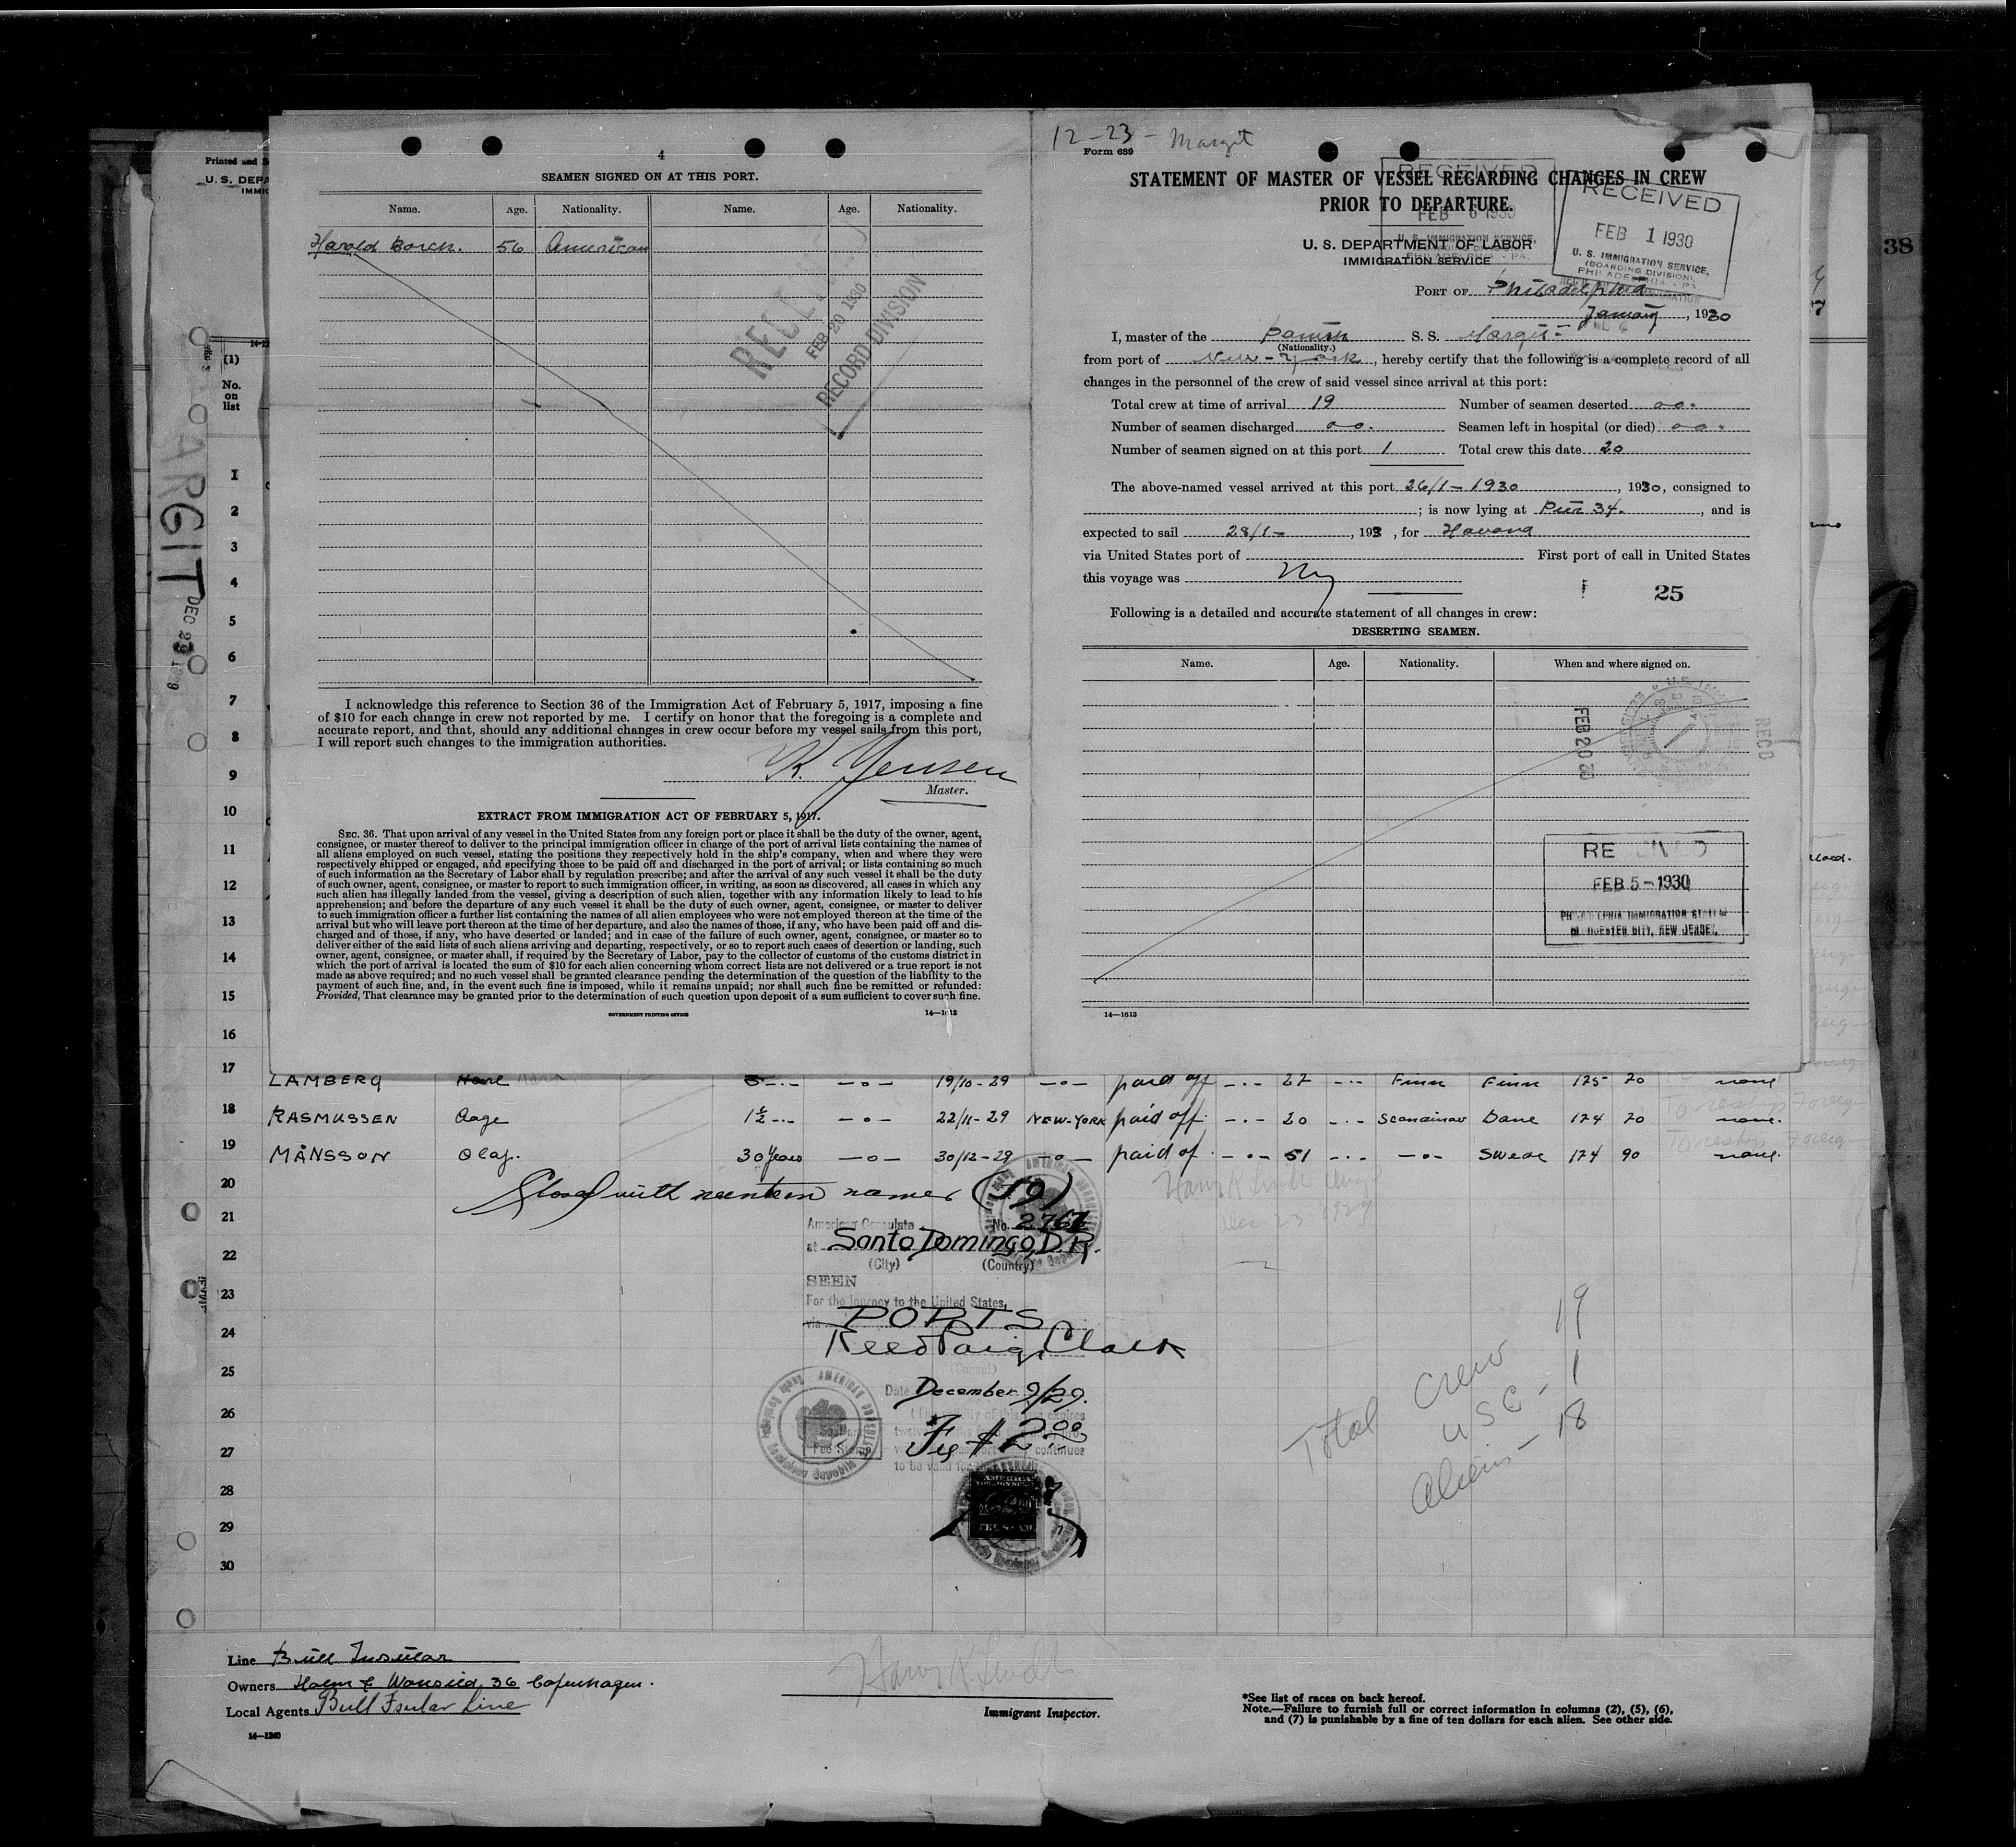 4
SEAMEN SIGNED ON AT THIS PORT.
Name. Age. Nationality. Name. Age. Nationality.
Harold 56 American
RECEIVED
FEB 20 1930
RECORD DIVISION
I acknowledge this reference to Section 36 of the Immigration Act of February 5, 1917, imposing a fine
of $10 for each change in crew not reported by me. I certify on honor that the foregoing is a complete and
accurate report, and that, should any additional changes in crew occur before my vessel sails from this port,
I will report such changes to the immigration authorities.
K. Jensen
Master.
EXTRACT FROM IMMIGRATION ACT OF FEBRUARY 5, 1917.
SEC. 36. That upon arrival of any vessel in the United States from any foreign port or place it shall be the duty of the owner, agent,
consignee, or master thereof to deliver to the principal immigration officer in charge of the port of arrival lists containing the names of
all aliens employed on such vessel, stating the positions they respectively hold in the ship's company, when and where they were
respectively shipped or engaged, and specifying those to be paid off and discharged in the port of arrival; or lists containing so much
of such information as the Secretary of Labor shall by regulation prescribe; and after the arrival of any such vessel it shall be the duty
of such owner, agent, consignee, or master to report to such immigration officer, in writing, as soon as discovered, all cases in which any
such alien has illegally landed from the vessel, giving a description of such alien, together with any information likely to lead to his
apprehension; and before the departure of any such vessel it shall be the duty of such owner, agent, consignee, or master to deliver
to such immigration officer a further list containing the names of all alien employees who were not employed thereon at the time of the
arrival but who will leave port thereon at the time of her departure, and also the names of those, if any, who have been paid off and dis-
charged and of those, if any, who have deserted or landed; and in case of the failure of such owner, agent, consignee, or master so to
deliver either of the said lists of such aliens arriving and departing, respectively, or so to report such cases of desertion or landing, such
owner, agent, consignee, or master shall, if required by the Secretary of Labor, pay to the collector of customs of the customs district in
which the port of arrival is located the sum of $10 for each alien concerning whom correct lists are not delivered or a true report is not
made as above required; and no such vessel shall be granted clearance pending the determination of the question of the liability to the
payment of such fine, and, in the event such fine is imposed, while it remains unpaid; nor shall such fine be remitted or refunded:
Provided, That clearance may be granted prior to the determination of such question upon deposit of a sum sufficient to cover such fine.
GOVERNMENT PRINTING OFFICE 14—1613
12-23- Margit
Form 689
STATEMENT OF MASTER OF VESSEL REGARDING CHANGES IN CREW
PRIOR TO DEPARTURE.
RECEIVED
FEB 6 1930
U. S. IMMIGRATION SERVICE,
PHILADELPHIA - PA.
RECEIVED
FEB 1 1930
U. S. IMMIGRATION SERVICE,
(BOARDING DIVISION),
PHILADELPHIA - PA
U. S. DEPARTMENT OF LABOR
IMMIGRATION SERVICE
PORT OF Philadelphia
January, 1930
I, master of the Danish S. S. Margit
(Nationality.)
from port of New-York, hereby certify that the following is a complete record of all
changes in the personnel of the crew of said vessel since arrival at this port:
Total crew at time of arrival 19 Number of seamen deserted oo.
Number of seamen discharged oo. Seamen left in hospital (or died) oo.
Number of seamen signed on at this port 1 Total crew this date 20
The above-named vessel arrived at this port 26/1-1930, 1930, consigned to
; is now lying at Pier 34., and is
expected to sail 28/1-, 193 , for Havana
via United States port of First port of call in United States
this voyage was NY
25
Following is a detailed and accurate statement of all changes in crew:
DESERTING SEAMEN.
Name. Age. Nationality. When and where signed on.
FEB 20 30
RECD
RECEIVED
FEB 5-1930
PHILADELPHIA IMMIGRATION STATION
GLOUCESTER CITY, NEW JERSEY.
14—1613
Printed and
U. S. DEPA
IMMIG
38
(1)
No.
on
list
ARGIT
DEC 23 1929
1
2
3
4
5
6
7
8
9
10
11
12
13
14
15
16
17 LAMBERG 19/10-29 -o- paid off 27 Finn Finn 175 70 none
18 RASMUSSEN Aage 1½ -o- 22/11-29 NEW-YORK paid off 20 Scandinav Dane 174 70 none.
19 MÅNSSON Olaf. 30 Years -o- 30/12-29 -o- paid of 51 -o- Swede 174 90 none.
20 Closed with neenteen names (19)
21 American Consulate No. 2767
22 at Santo Domingo, D.R.
(City) (Country)
23 SEEN
For the Journey to the United States,
24 via PORTS
Reed Paige Clark
25 (Consul)
Date December 9/29.
26
27 Fee $2.00
28
29
30
Total Crew 19
USC - 1
Aliens - 18
Line Bull Insular
Owners Holm & Wonsild, 36 Copenhagen.
Local Agents Bull Insular Line
Immigrant Inspector.
14—1240
*See list of races on back hereof.
Note.—Failure to furnish full or correct information in columns (2), (5), (6),
and (7) is punishable by a fine of ten dollars for each alien. See other side.